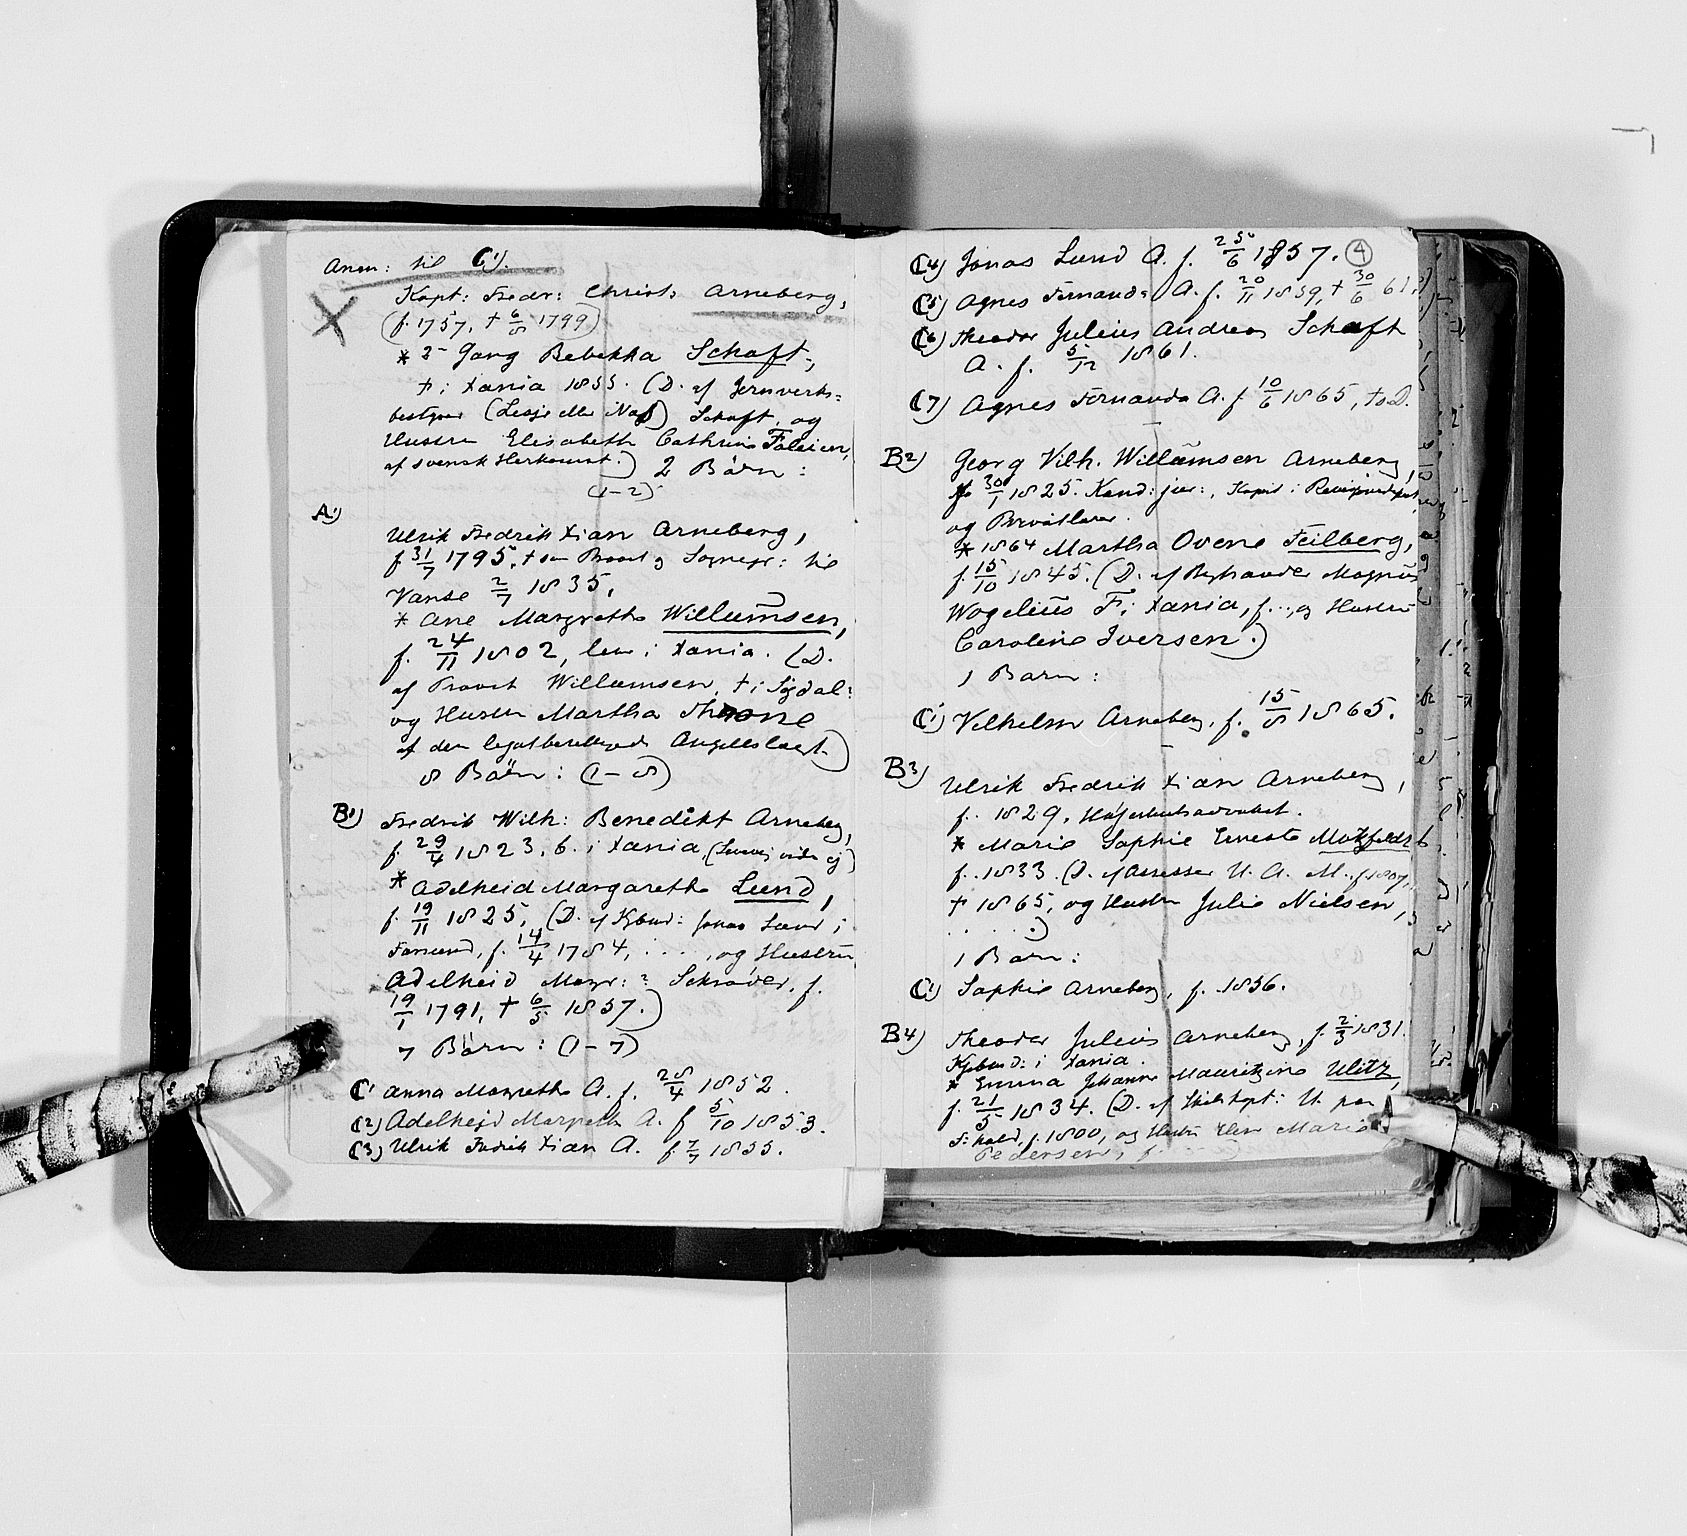 Anm: til C1).
Kapt: Fredr: Christ: Arneberg,
(f. 1757, † 6/8 1799)
* 2den Gang Rebekka Schaft,
† i Xania 1855. (D. af Jernverks-
bestyrer (Lesje eller Næs) Schaft, og
Hustru Elisabeth Cathrine
af svensk Herkomst.) 2 Børn:
(1-2)
A1)
Ulrik Fredrik Xian Arneberg,
f 31/7 1795, † som Provst og Sognepr: til
Vanse 2/7 1835,
* Ane Margrethe Willumsen,
f. 24/11 1802, lev i Xania. (D.
af Provst Willumsen, † i Sigdal:
og Hustru Martha Throne
af den legatberettigede Angellslægt.)
8 Børn: (1-8)
B1) Fredrik Wilh: Benedikt Arneberg,
f. 29/4 1823, b. i Xania,
* Adelheid Margarethe Lund,
f. 19/11 1825, (D. af Kjbmd: Jonas Lund i
Farsund, f. 14/4 1784, ...., og Hustru
Adelheid Margr: ? Schrøder, f.
19/1 1791, † 6/5 1857.)
7 Børn: (1-7)
C1 Anna Margrethe A. f. 28/4 1852.
C2) Adelheid Margreth A. f 5/10 1853.
C3) Ulrik Fredrik Xian A. f. 2/7 1855.
C4) Jonas Lund A. f. 25/6 1857. 4
C5) Agnes Fernanda A. f. 20/11 1859, † 30/6 61.
C6) Theodor Julius Andreas Schaft
A. f. 5/12 1861.
C7) Agnes Fernanda A. f 10/6 1865, † s.D.
B2) Georg Vilh. Willumsen Arneberg,
f. 30/1 1825. Kand: jur:, Kopist i Revisionsdept
og
* 1864 Martha Ovene Feilberg,
f. 15/10 1845. (D. af Magnus
Wogelius F. i Xania, f..., og Hustru
Caroline Iversen.)
1 Barn:
C1 Vilhelm Arneberg, f. 15/8 1865.
B3) Ulrik Fredrik Xian Arneberg,
f. 1829, Høiesteretsadvokat.
* Marie Sophie Erneste Motzfeldt
f. 1833. (D. af Assessor U. A. M. f. 1807,
† 1865, og Hustru Julie Nielsen,
. . . .)
1 Barn:
C1) Sophie Arneberg, f. 1856.
B4) Theodor Julius Arneberg, f. 2/3 1831.
Kjbmd: i Xania.
* Emma Johanne Mauritzine Ulitz,
f. 21/5 1834. (D. af Skibskapt: U. paa
f. 1800, og Hustru Else Marie
Pedersen, f.